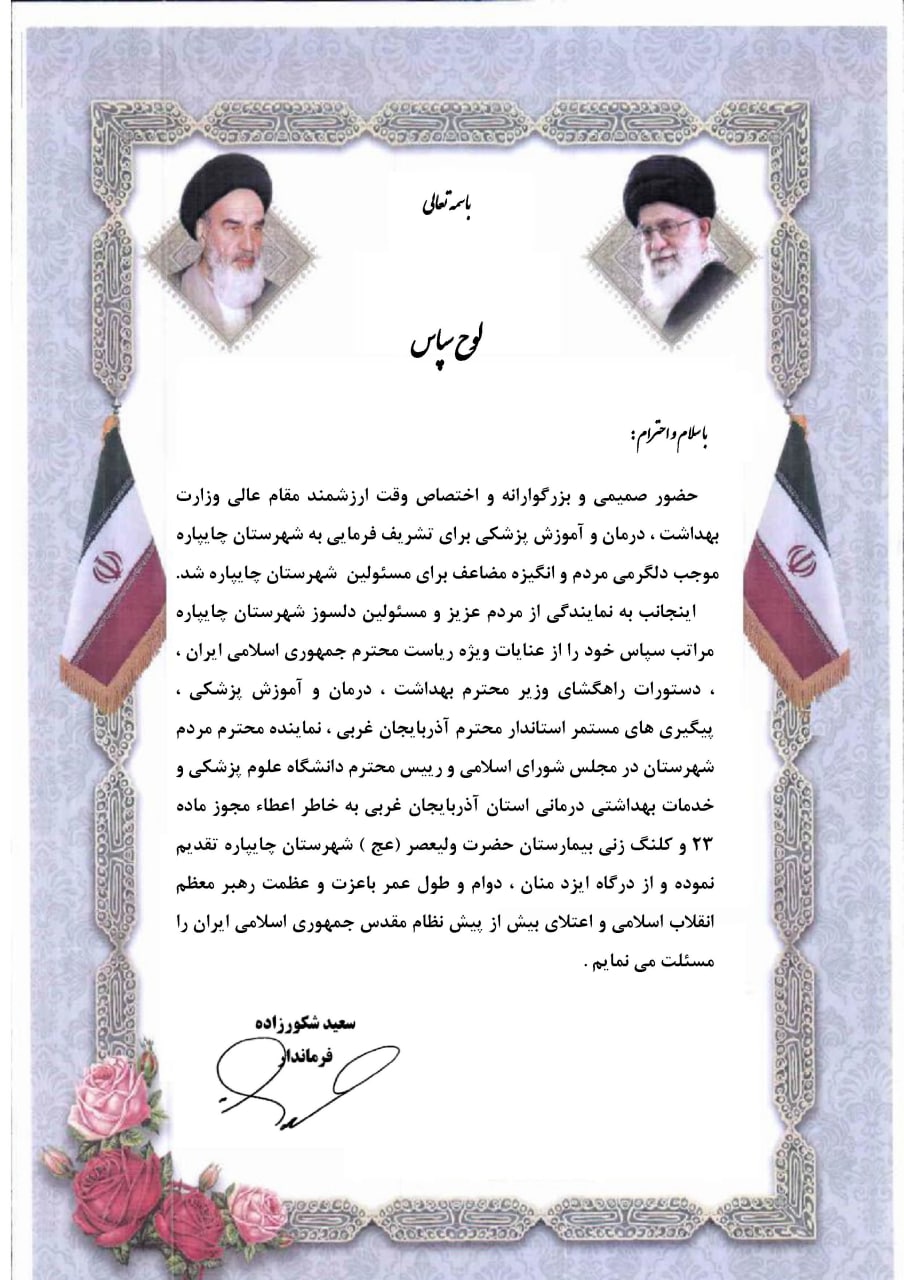 باسمه تعالی
لوح سپاس
باسلام و احترام :
حضور صمیمی و بزرگوارانه و اختصاص وقت ارزشمند مقام عالی وزارت
بهداشت ، درمان و آموزش پزشکی برای تشریف فرمایی به شهرستان چایپاره
موجب دلگرمی مردم و انگیزه مضاعف برای مسئولین شهرستان چایپاره شد.
اینجانب به نمایندگی از مردم عزیز و مسئولین دلسوز شهرستان چایپاره
مراتب سپاس خود را از عنایات ویژه ریاست محترم جمهوری اسلامی ایران ،
، دستورات راهگشای وزیر محترم بهداشت ، درمان و آموزش پزشکی ،
پیگیری های مستمر استاندار محترم آذربایجان غربی ، نماینده محترم مردم
شهرستان در مجلس شورای اسلامی و رییس محترم دانشگاه علوم پزشکی و
خدمات بهداشتی درمانی استان آذربایجان غربی به خاطر اعطاء مجوز ماده
۲۳ و کلنگ زنی بیمارستان حضرت ولیعصر (عج ) شهرستان چایپاره تقدیم
نموده و از درگاه ایزد منان ، دوام و طول عمر باعزت و عظمت رهبر معظم
انقلاب اسلامی و اعتلای بیش از پیش نظام مقدس جمهوری اسلامی ایران را
مسئلت می نمایم .
سعید شکورزاده
فرماندار